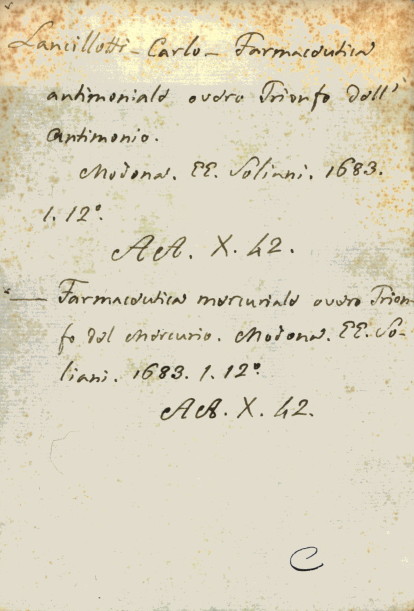 Lancillotti - Carlo - Farmaceutica
antimoniale overo Trionfo dell'
Antimonio.
Modona. EE. Soliani. 1683.
1. 12°.
AA. X. 42.
— Farmaceutica mercuriale overo Trion-
fo del Mercurio. Modona. EE. So-
liani. 1683. 1. 12°.
AA. X. 42.
C